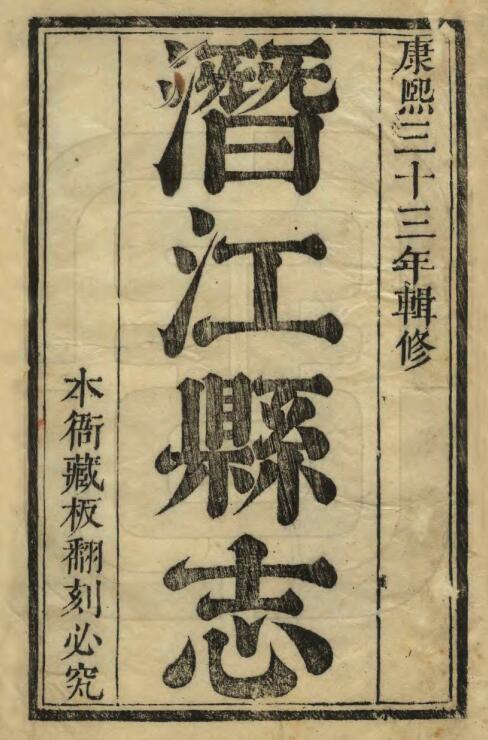 康熙三十三年輯修
潛江縣志
本衙藏板翻刻必究